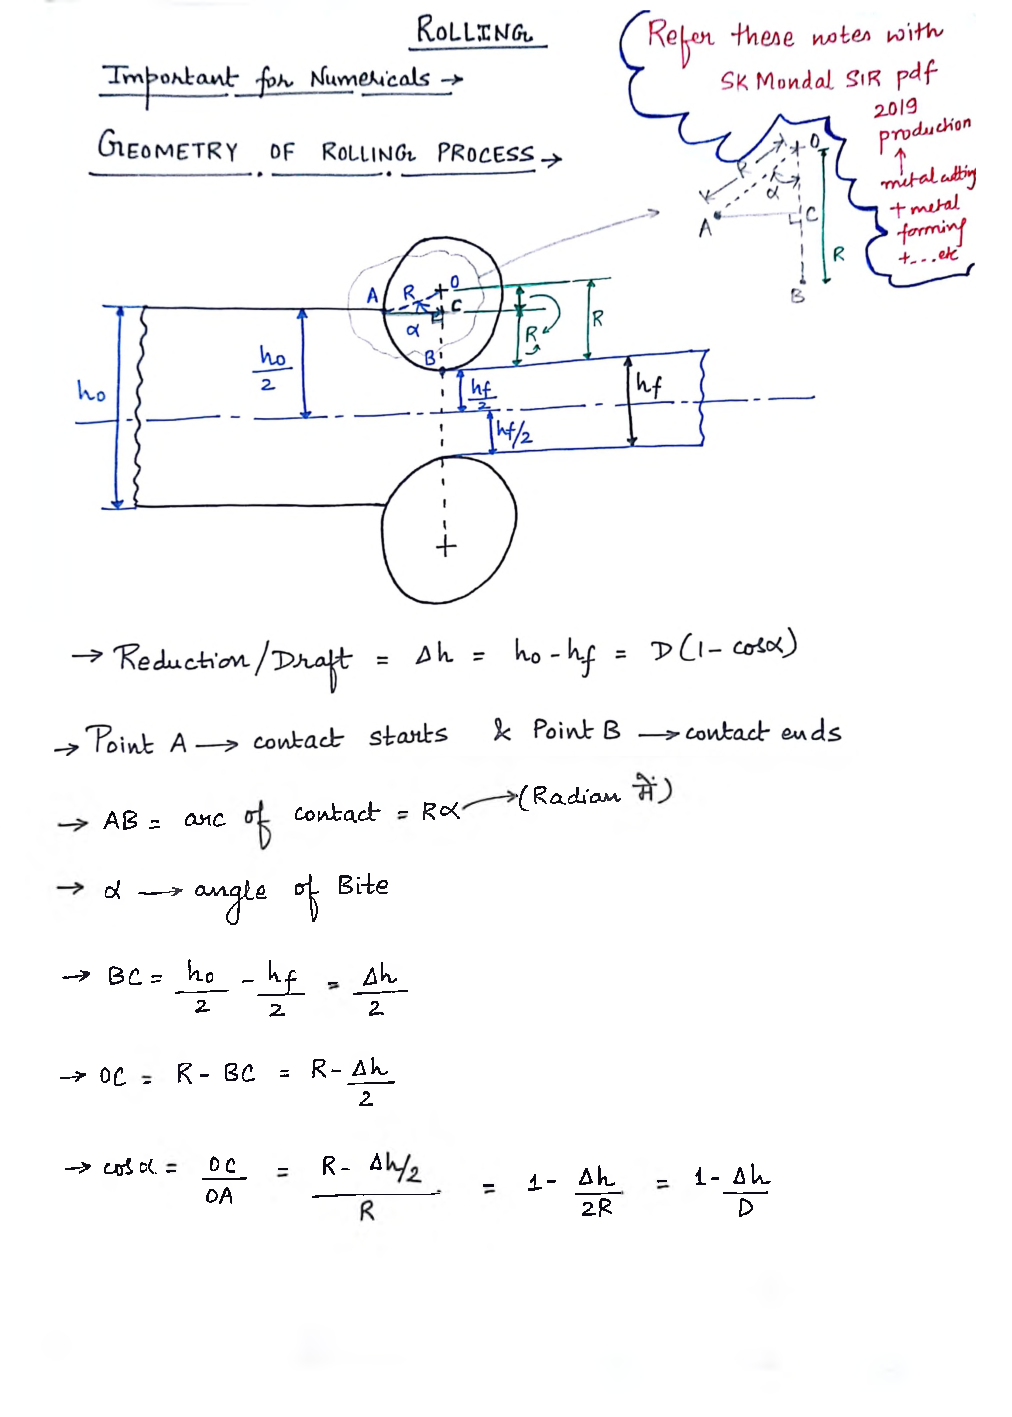 ROLLING
Important for Numericals →
GEOMETRY OF ROLLING PROCESS →
Refer these notes with
SK Mondal SIR pdf
2019
production
↑
metal cutting
+ metal
forming
+...etc
O
R
α
A
C
R
B
A
R
O
C
α
B
R
R
ho
ho/2
hf/2
hf
hf/2
→ Reduction/Draft = Δh = ho - hf = D(1 - cosα)
→ Point A → contact starts & Point B → contact ends
→ AB = arc of contact = Rα → (Radian में)
→ α → angle of Bite
→ BC = ho/2 - hf/2 = Δh/2
→ OC = R - BC = R - Δh/2
→ cosα = OC/OA = R - Δh/2 / R = 1 - Δh/2R = 1 - Δh/D